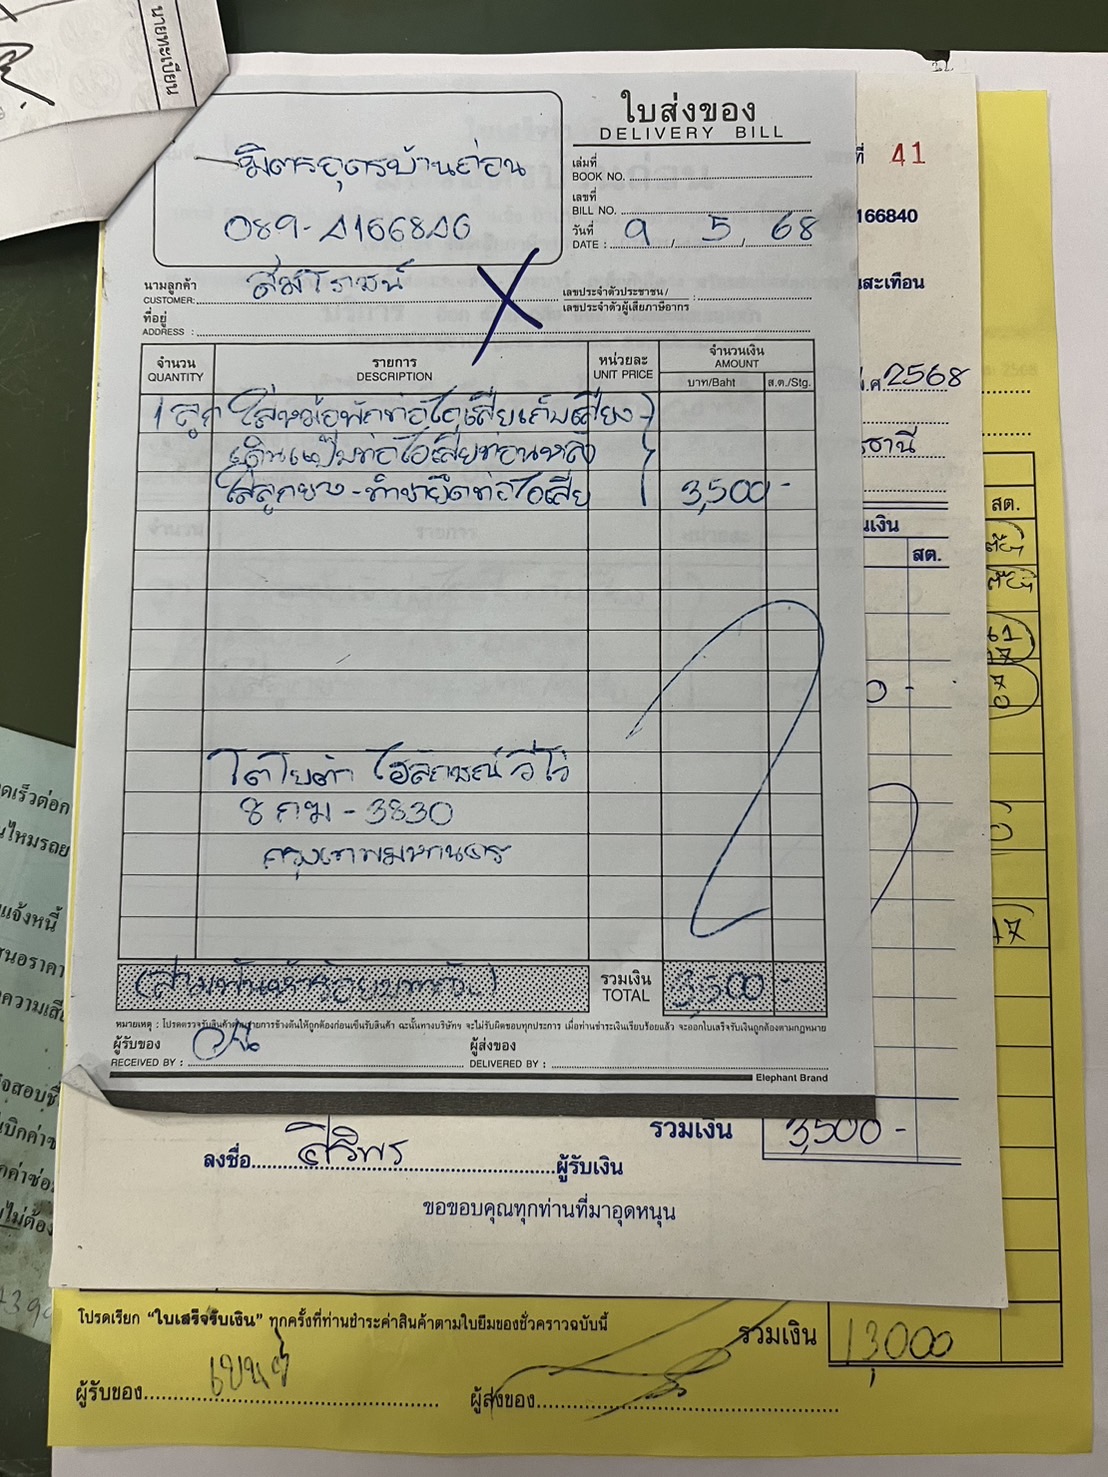 นายทะเบียน
ใบส่งของ
DELIVERY BILL
มิตรอุดรบ้านถ่อน
089-4166840
เล่มที่
BOOK NO.
เลขที่
BILL NO.
วันที่
DATE : 9 / 5 / 68
นามลูกค้า
CUSTOMER:
เลขประจำตัวประชาชน /
เลขประจำตัวผู้เสียภาษีอากร :
ที่อยู่
ADDRESS :
จำนวน
QUANTITY
รายการ
DESCRIPTION
หน่วยละ
UNIT PRICE
จำนวนเงิน
AMOUNT
บาท/Baht
ส.ต./Stg.
1 ลูก ใส่หม้อพักท่อไอเสียเก็บเสียง
เดินแป๊บท่อไอเสียท่อนหลัง
ใส่ลูกยาง - ทำขายึดท่อไอเสีย 3,500 -
โตโยต้า ไฮลักซ์ วีโก้
8 กฆ - 3830
กรุงเทพมหานคร
(สามพันห้าร้อยบาทถ้วน)
รวมเงิน
TOTAL
3,500 -
หมายเหตุ : โปรดตรวจรับสินค้าตามรายการข้างต้นให้ถูกต้องก่อนเซ็นรับสินค้า ฉะนั้นทางบริษัทฯ จะไม่รับผิดชอบทุกประการ เมื่อท่านชำระเงินเรียบร้อยแล้ว จะออกใบเสร็จรับเงินถูกต้องตามกฎหมาย
ผู้รับของ
RECEIVED BY :
ผู้ส่งของ
DELIVERED BY :
Elephant Brand
ที่ 41
166840
นสะเทือน
.ศ 2568
รธานี
นเงิน
สต.
รวมเงิน 3,500 -
ลงชื่อ ศิริพร ผู้รับเงิน
ขอขอบคุณทุกท่านที่มาอุดหนุน
สต.
โปรดเรียก "ใบเสร็จรับเงิน" ทุกครั้งที่ท่านชำระค่าสินค้าตามใบยืมของชั่วคราวฉบับนี้
รวมเงิน 13,000
ผู้รับของ
ผู้ส่งของ